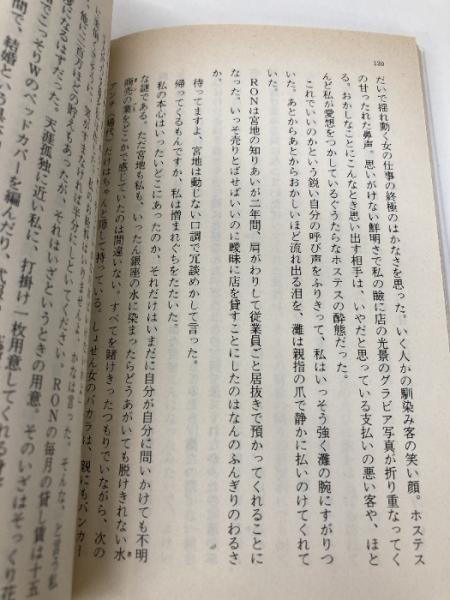 120
だいで揺れ動く女の仕事の終極のはかなさを思った。いく人かの馴染み客の笑い顔。ホステス
の甘ったれた鼻声。思いがけない鮮明さで私の瞼に店の光景のグラビア写真が折り重なってく
る。おかしなことにこんなとき思い出す相手は、いやだと思っている支払いの悪い客や、ほと
んど私が愛想をつかしているぐうたらなホステスの酔態だった。
これでいいのかという鋭い自分の呼び声をふりきって、私はいっそう強く灘の腕にすがりつ
いた。あとからあとからおかしいほど流れ出る泪を、灘は親指の爪で静かに払いのけてくれて
いた。
RONは宮地の知りあいが二年間、肩がわりして従業員ごと居抜きで預かってくれることに
なった。いっそ売りとばせばいいのに曖昧に店を貸すことにしたのはなんのふんぎりのわるさ
か。
待ってますよ、宮地は動じない口調で冗談めかして言った。
帰ってくるもんですか、私は憎まれぐちをたたいた。
私の本心はいったいどこにあったのか、それだけはいまだに自分が自分に問いかけても不明
な謎である。ただ宮地も私も、いったん銀座の水に染まったらどうあがいても脱けきれない水
商売の業をどこかで感じていたのは間違いない。すべてを賭けきったつもりでいながら、次の
アンテ（場代）だけはちゃんと隠して持っている。しょせん女のバカラは、親にもバンカー
RONの毎月の貸し賃は十五
になるはずだった。天涯孤独に近い私に、打掛け一枚用意してくれる
でこっそりWのベッドカバーを編んだり、
間で、結婚という